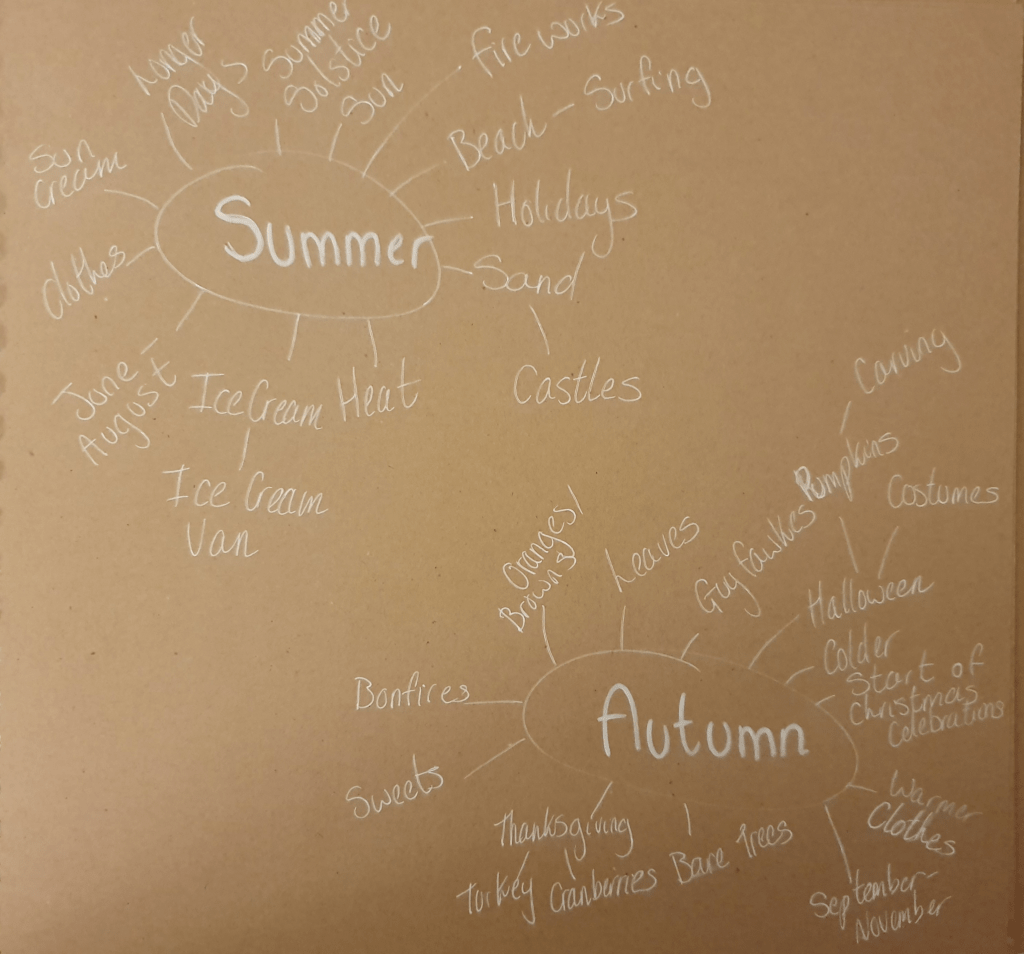 Longer
Days
Summer
Solstice
Sun
Fireworks
Beach - Surfing
Holidays
Sand
Castles
Sun
Cream
Clothes
Summer
June -
August
Ice Cream
Heat
Ice Cream
Van
Oranges/
Browns
Leaves
Guy Fawkes
Carving
Pumpkins
Costumes
Halloween
Colder
Start of
Christmas
Celebrations
Bonfires
Autumn
Sweets
Warmer
Clothes
Thanksgiving
Turkey
Cranberries
Bare Trees
September-
November